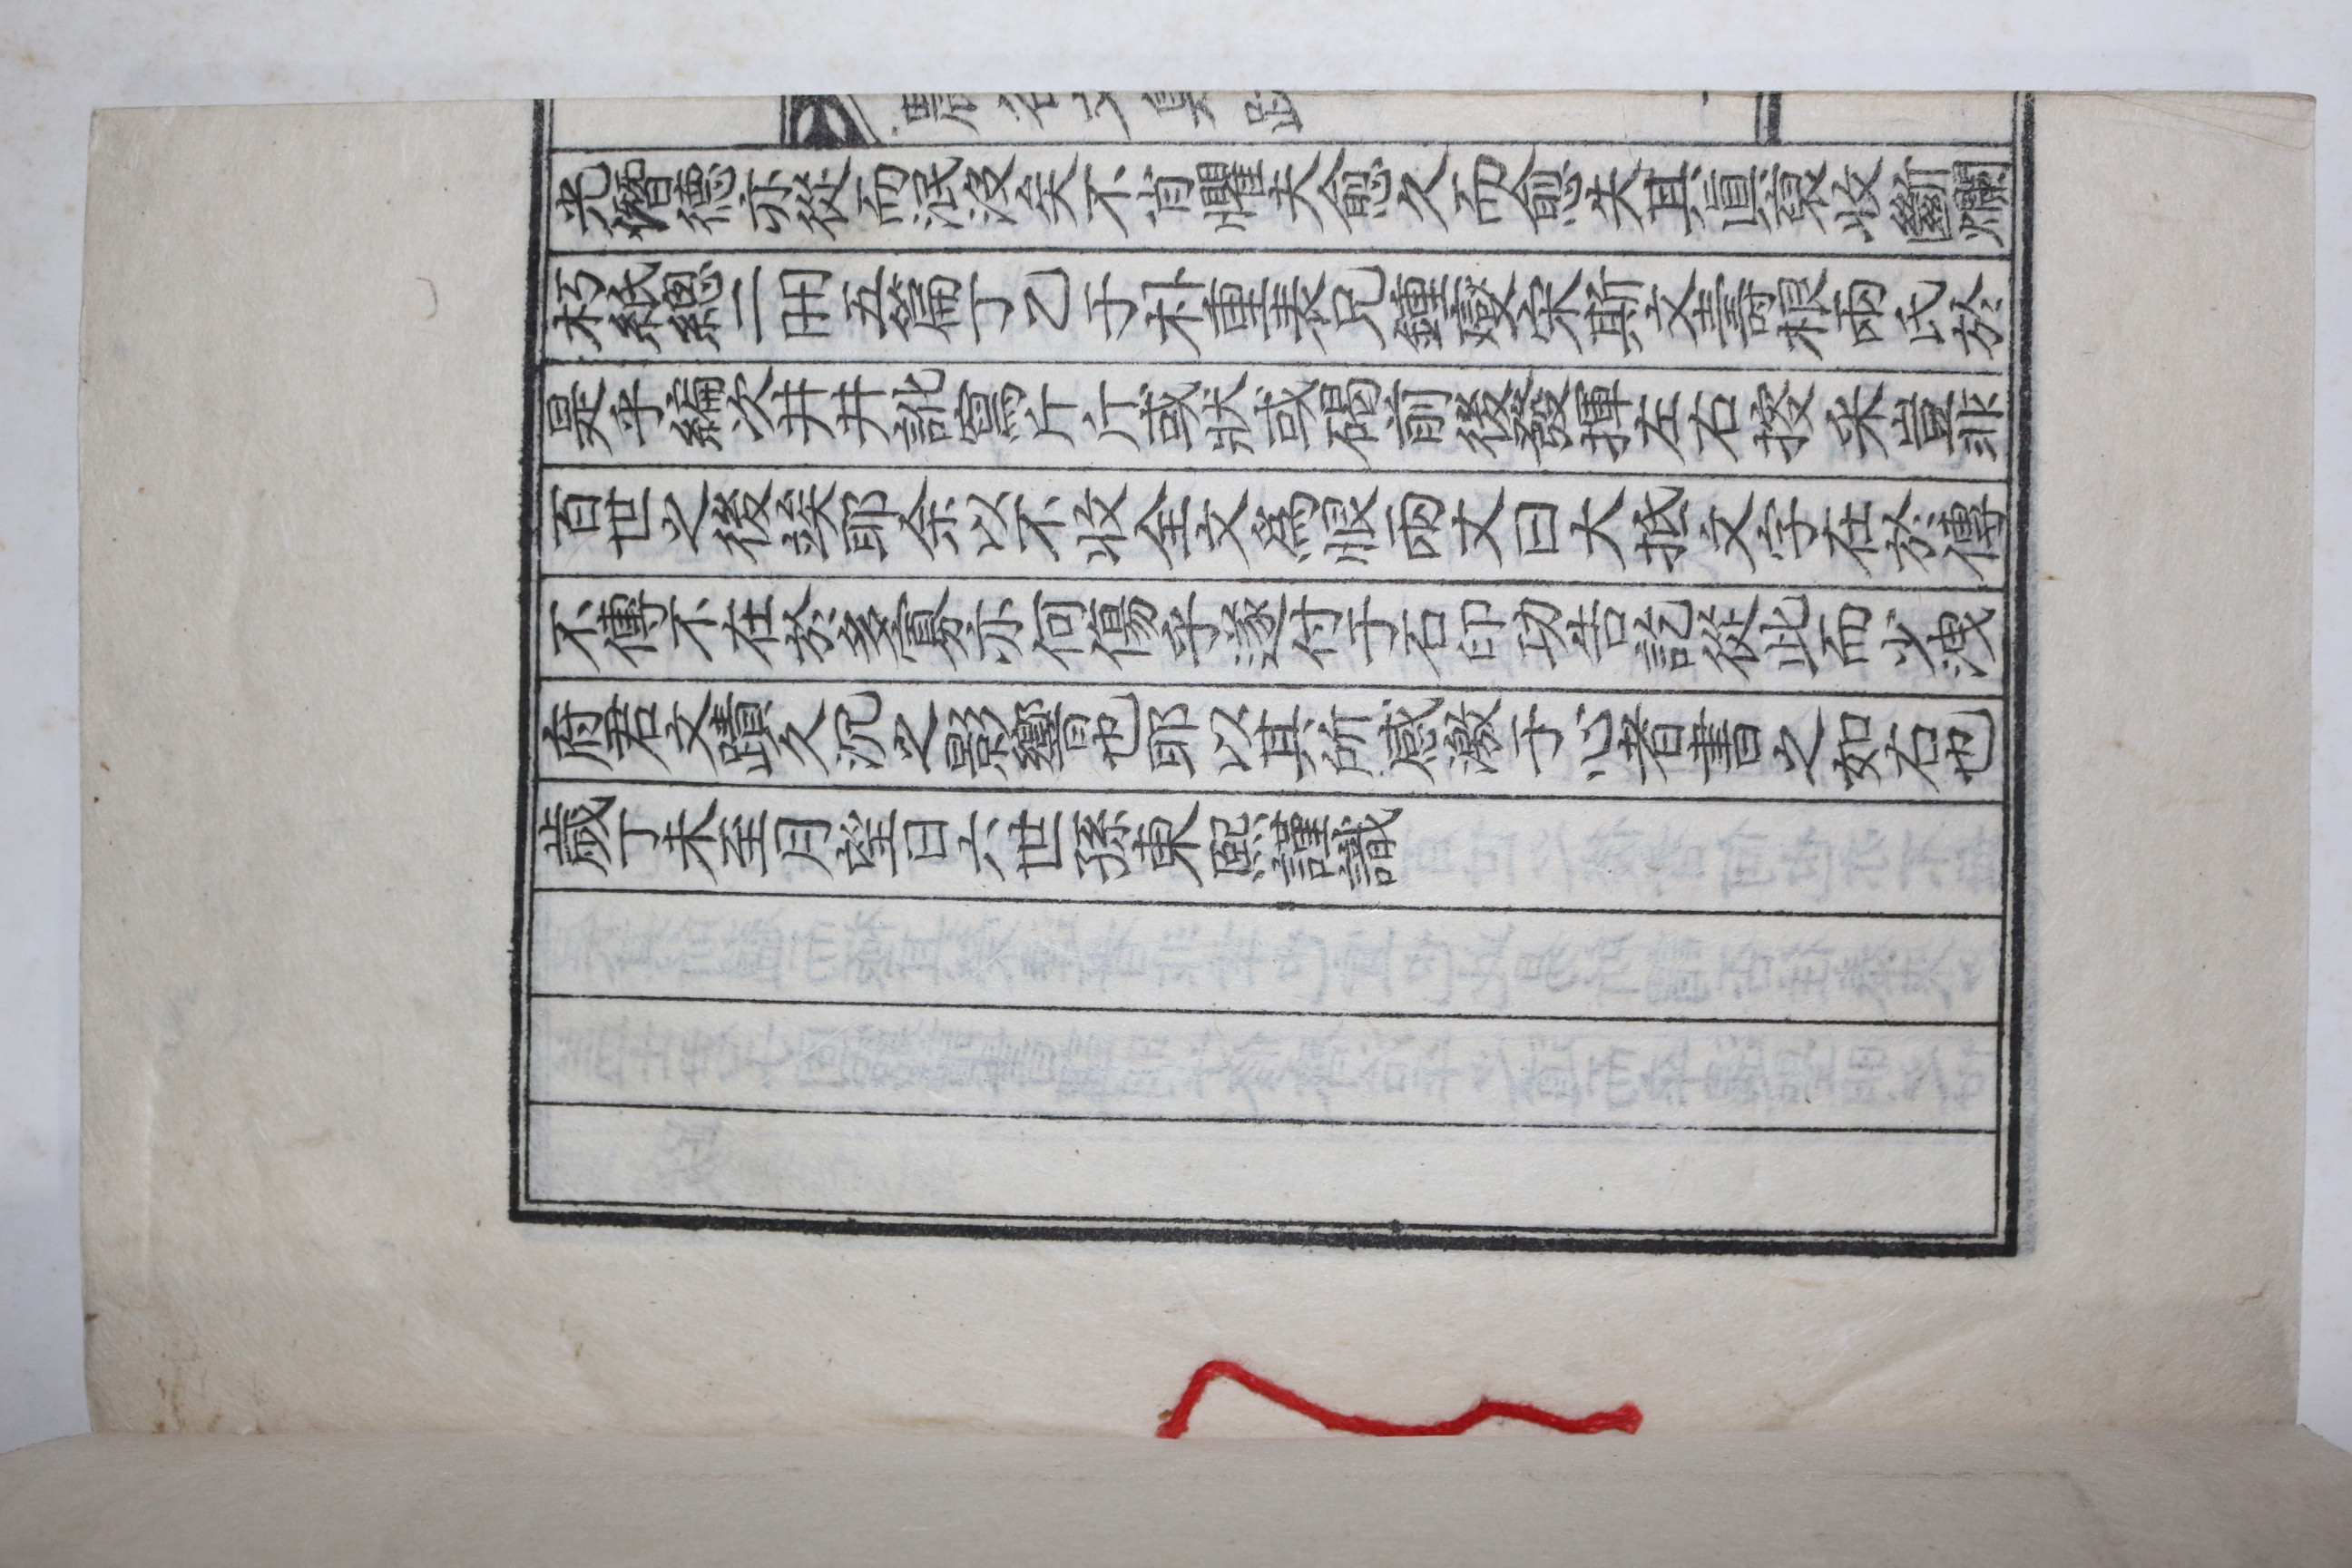 農谷文集跋
光僭德亦從而泯沒矣不肖懼夫愈久而愈失其眞裒收斷爛
朽紙總二冊五篇丁乙于朴重表兄鍾燮宋斯文壽根兩氏於
是乎編次井井訛寫斤斤或狀或碣前後發揮左右搜采豈非
百世之後竢耶余以不收全文爲恨兩丈曰大抵文字在於傳
不傳不在於多寡亦何傷乎遂付于石印功告訖從此而少洩
府君文蹟久沉之影響也耶以其所感激于心者書之如右也
歲丁未至月望日六世孫東熙謹識